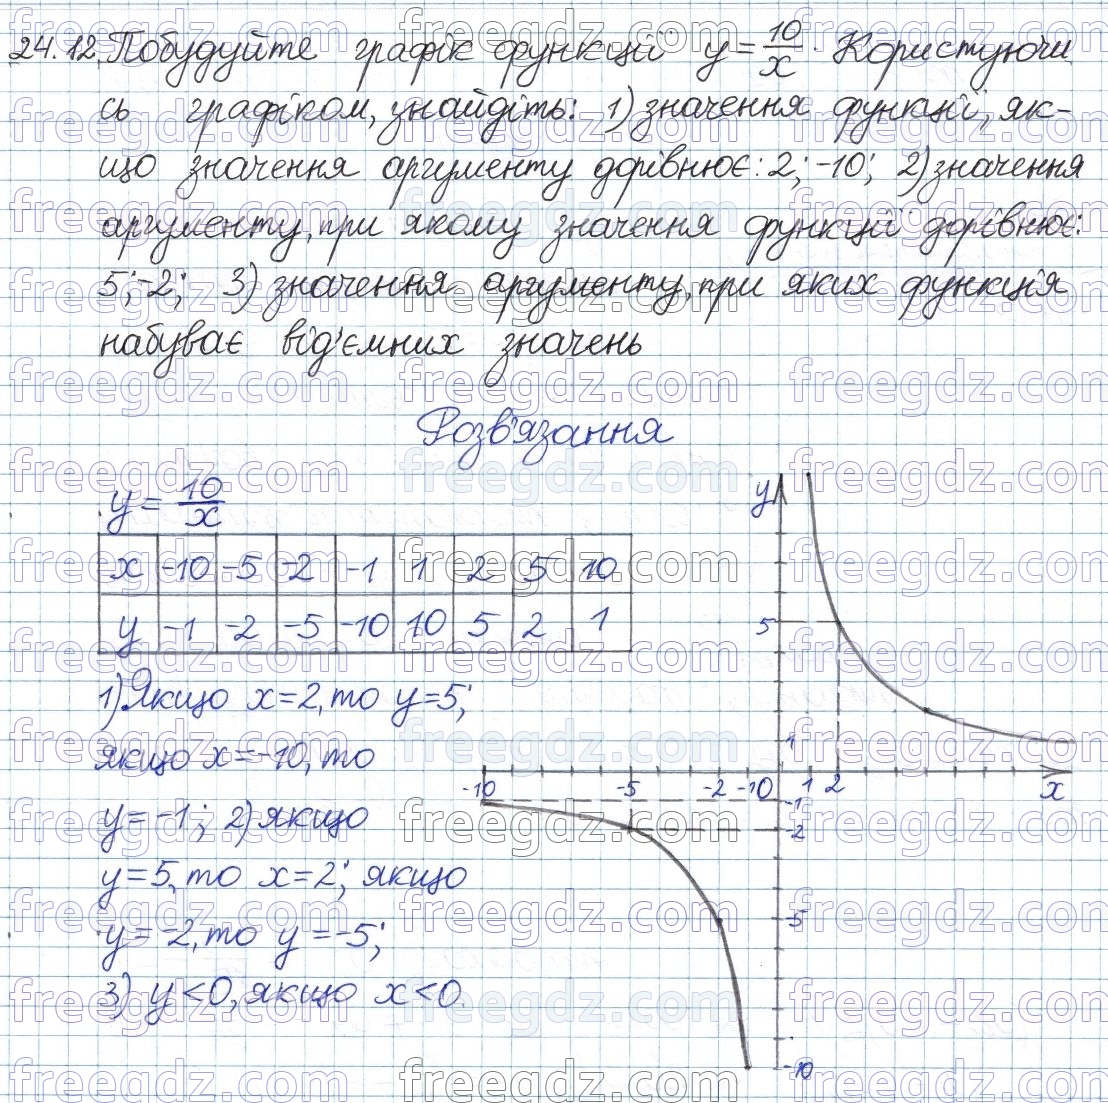 24.12. Побудуйте графік функції y = 10/x. Користуючи
сь графіком, знайдіть: 1) значення функції, як-
що значення аргументу дорівнює: 2; -10; 2) значення
аргументу, при якому значення функції дорівнює:
5; -2; 3) значення аргументу, при яких функція
набуває від'ємних значень
Розв'язання
y = 10/x
x -10 -5 -2 -1 1 2 5 10
y -1 -2 -5 -10 10 5 2 1
1) Якщо x = 2, то y = 5;
якщо x = -10, то
y = -1; 2) якщо
y = 5, то x = 2; якщо
y = -2, то y = -5;
3) y < 0, якщо x < 0.
y
5
1
-10 -5 -2 -1 0 1 2 x
-1
-2
-5
-10
freegdz.com